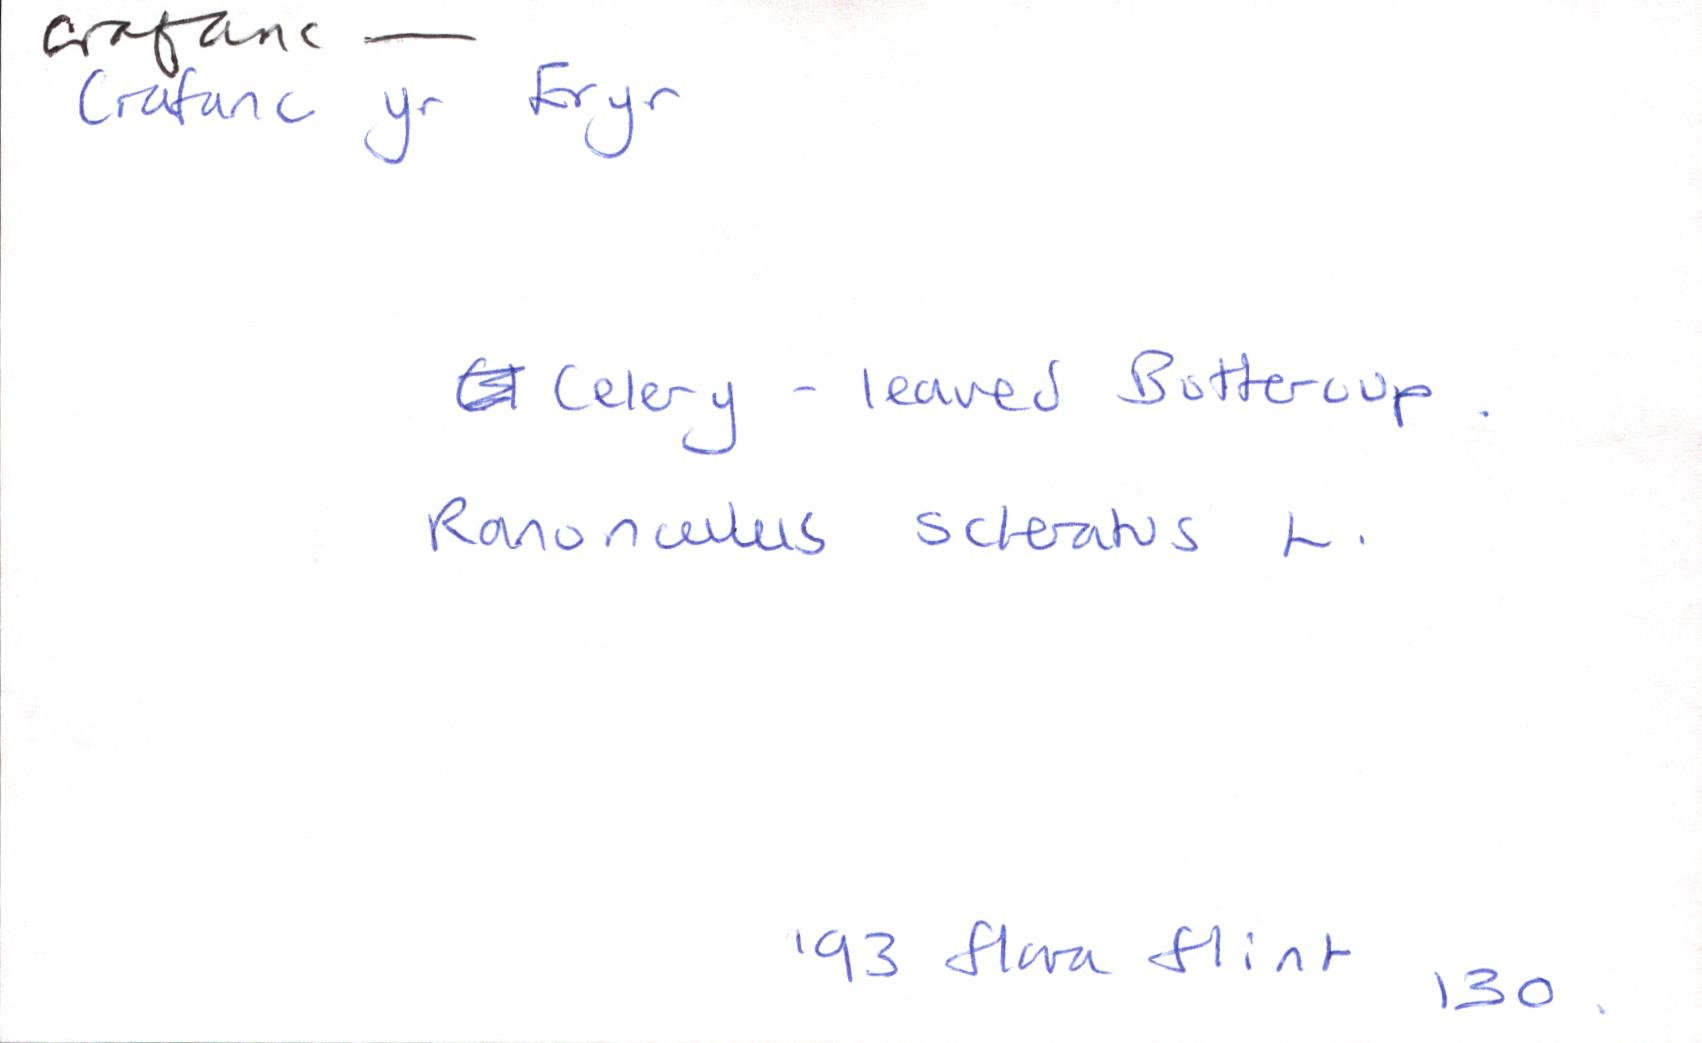 crafanc —
Crafanc yr Eryr
Celery - leaved Buttercup.
Ranunculus scleratus L.
'93 flora flint 130.